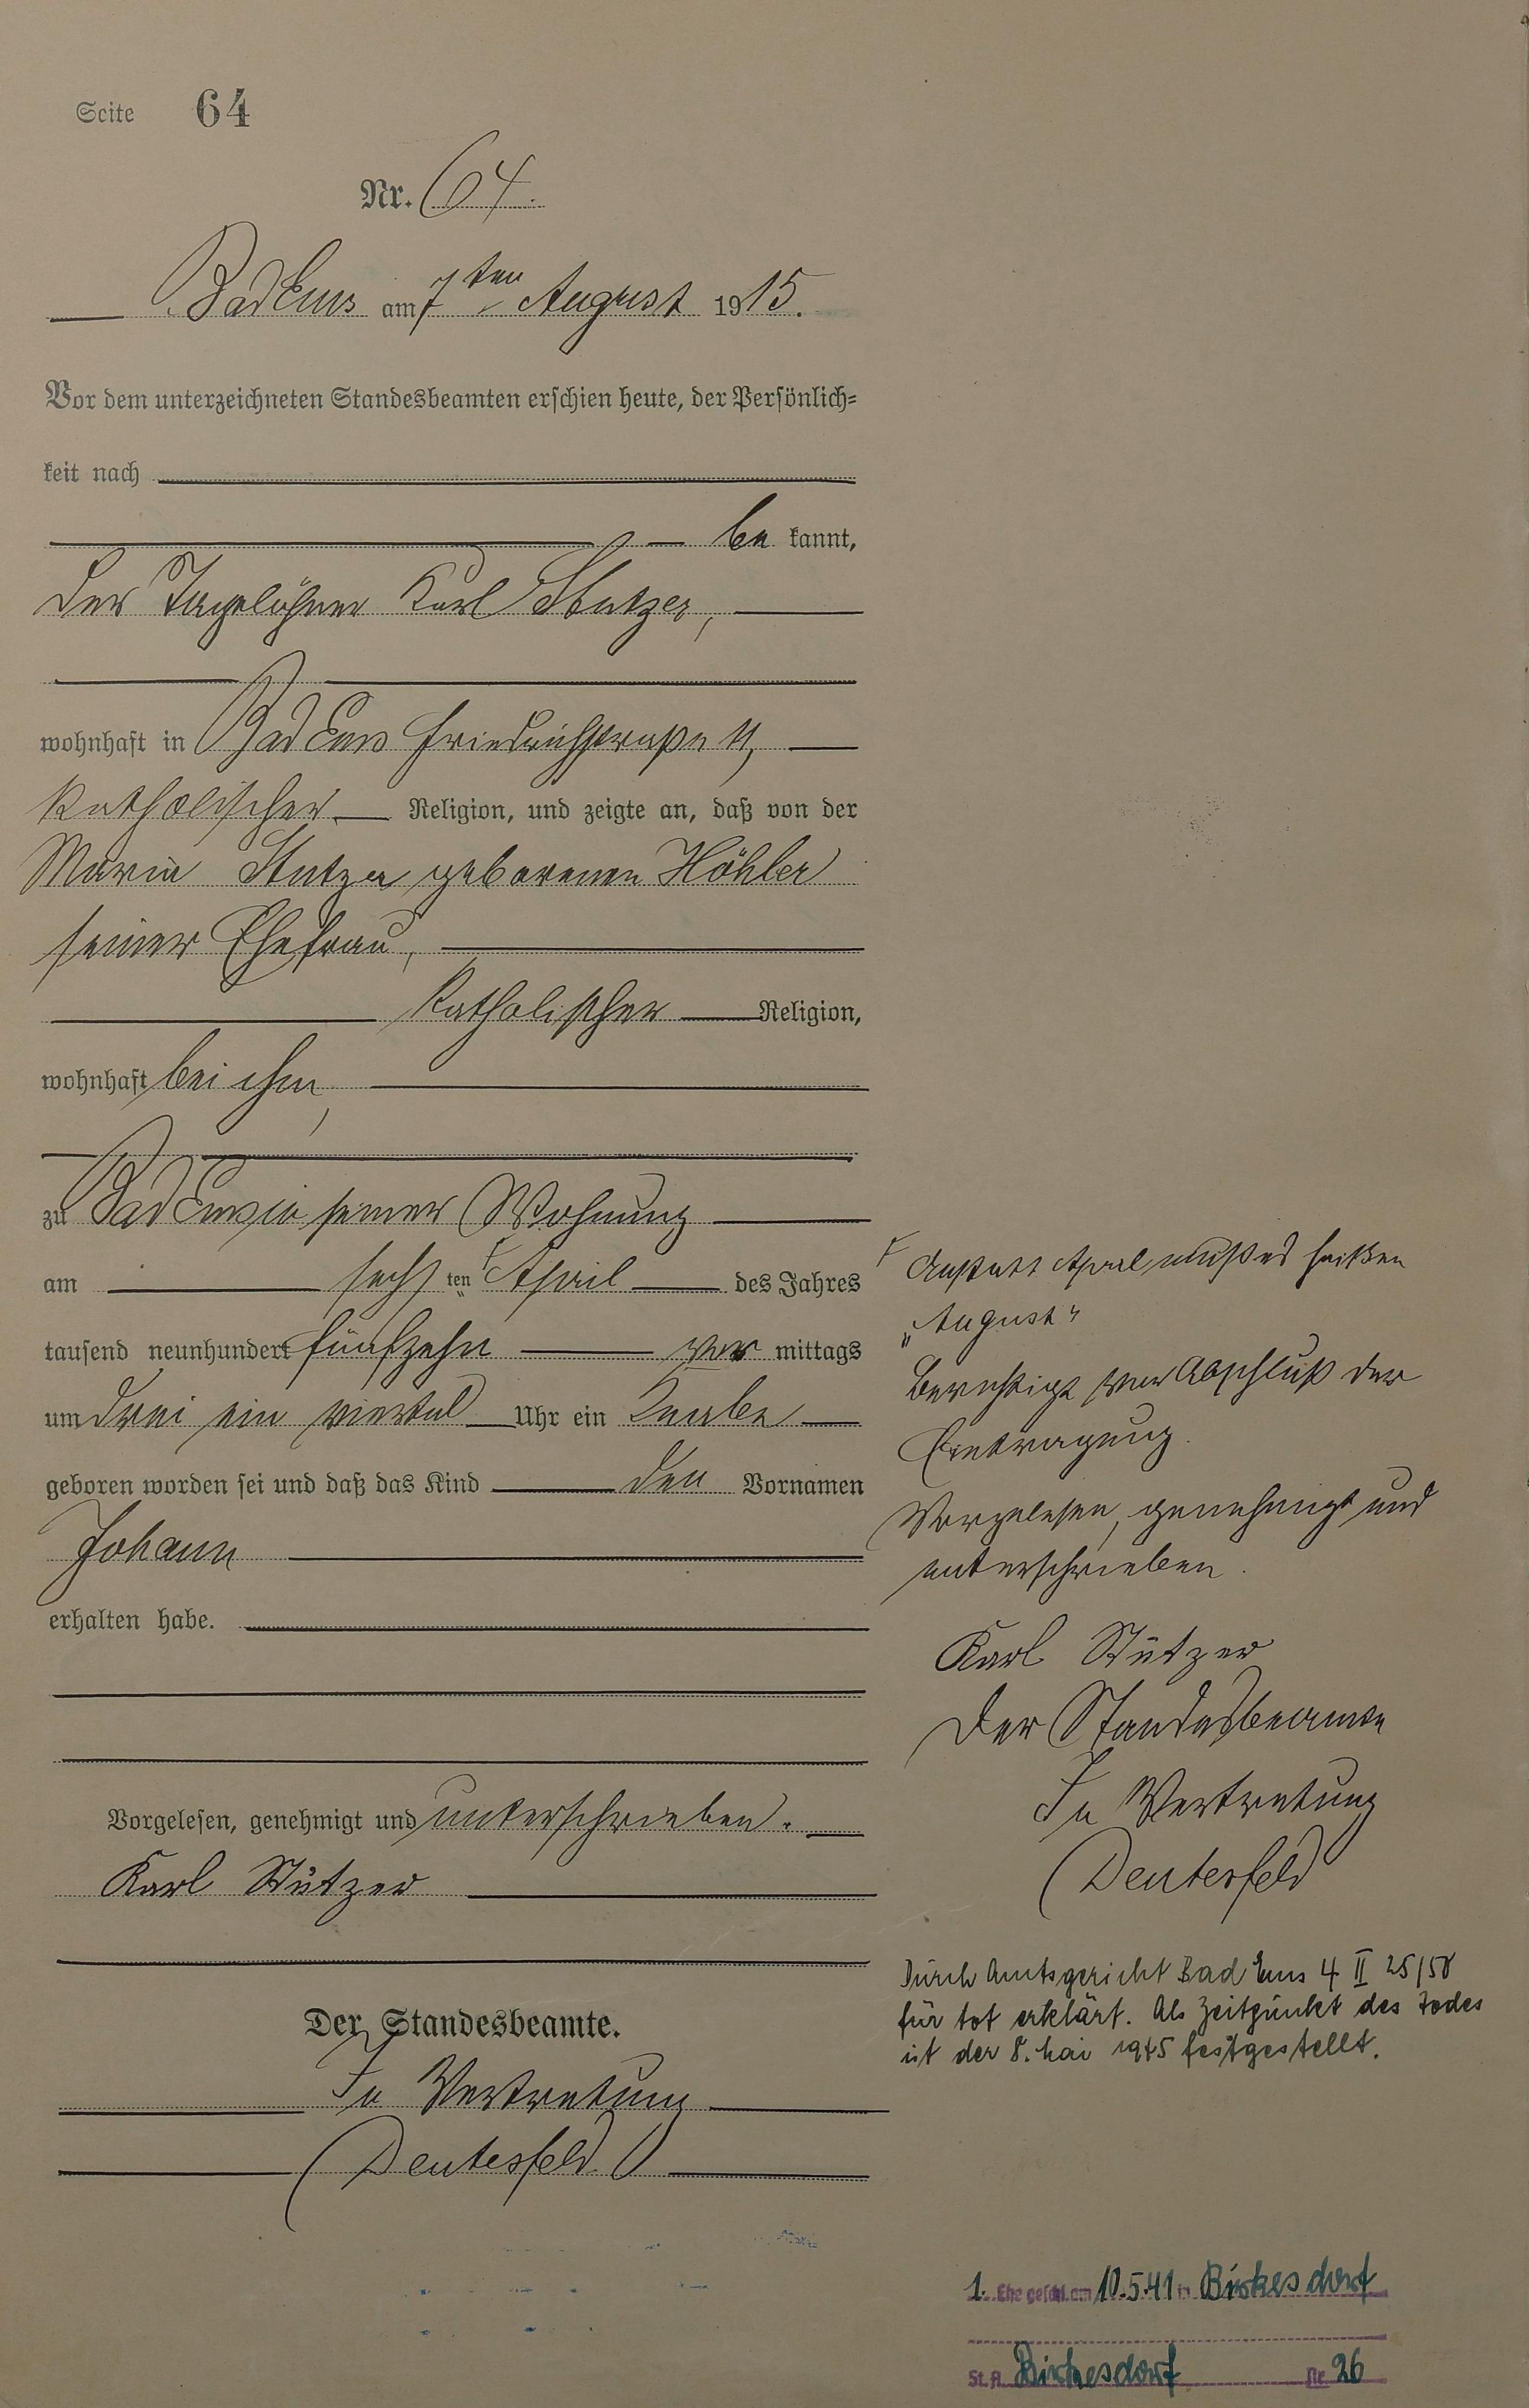 Seite 64
Nr. 64.
Bad Ems am 7ten August 1915.
Vor dem unterzeichneten Standesbeamten erschien heute, der Persönlich-
keit nach
be kannt,
der Tagelöhner Karl Stutzer,
wohnhaft in Bad Ems Friedrichstraße 11,
katholischer Religion, und zeigte an, daß von der
Maria Stutzer geborenen Höhler
seiner Ehefrau,
katholischer Religion,
wohnhaft bei ihm,
zu Bad Ems in seiner Wohnung
am sechsten April des Jahres
tausend neunhundert fünfzehn vor mittags
um drei ein viertel Uhr ein Knabe
geboren worden sei und daß das Kind den Vornamen
Johann
erhalten habe.
Vorgelesen, genehmigt und unterschrieben.
Karl Stützer
Der Standesbeamte.
In Vertretung
Deutesfeld
Anstatt April muß es heißen
„August"
Berichtigt vor Abschluß der
Eintragung.
Vorgelesen, genehmigt und
unterschrieben.
Karl Stützer
Der Standesbeamte
In Vertretung
Deutesfeld
Durch Amtsgericht Bad Ems 4 II 25/50
für tot erklärt. Als Zeitpunkt des Todes
ist der 8. Mai 1945 festgestellt.
1. Ehe geschl. am 10.5.41 in Birkesdorf
St. A. Birkesdorf Nr. 26